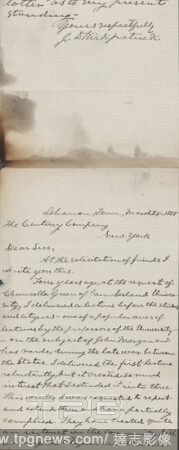 lotter" as to my present
standing.
Yours respectfully
J. D. Kirkpatrick
Lebanon, Tenn, March 28, 1888
The Century Company
New York
Dear Sirs,
At the solicitation of friends I
write you this.
Four years ago at the request of
Chancellor Green of Cumberland Univer-
sity, I delivered a lecture before the students
and citizens - one of a popular series of
lectures by the professors of the University
- on the subject of John Morgan and
his raids, during the late war between
the States. I delivered the first lecture
reluctantly, but it created so much
interest that I extended it into three.
This winter I was requested to repeat
and extend them and have partially
complied. They have created quite
an interest
www.tpgnews.com/ 達志影像